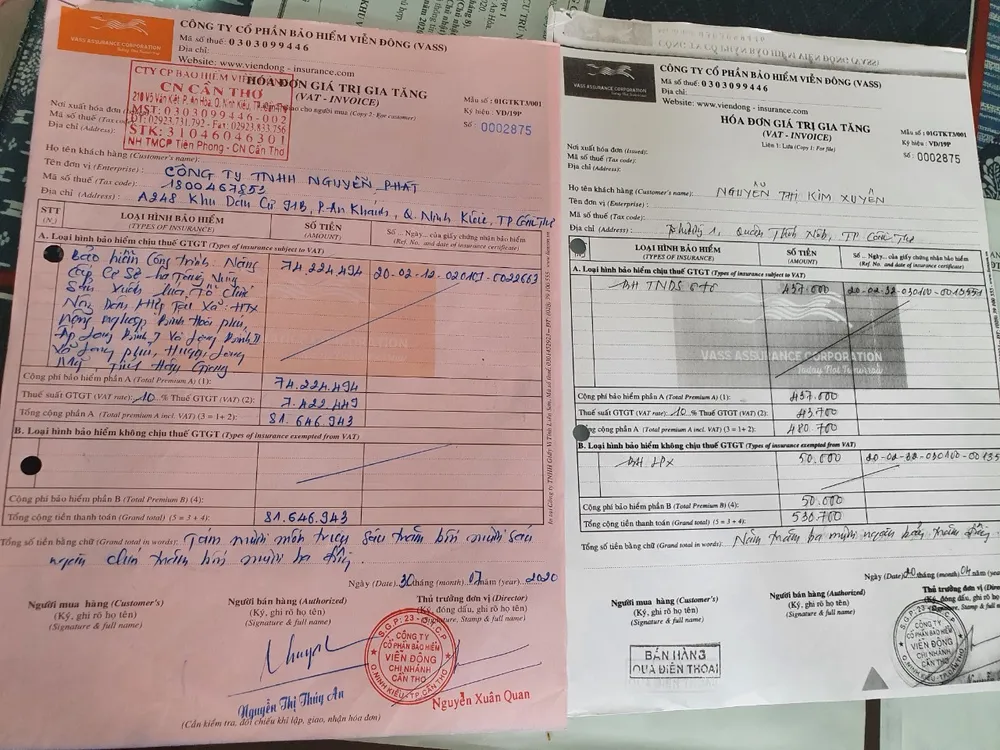 CÔNG TY CỔ PHẦN BẢO HIỂM VIỄN ĐÔNG (VASS)
Mã số thuế: 0303099446
Địa chỉ:
Website: www.viendong - insurance.com
VASS ASSURANCE CORPORATION
CTY CP BẢO HIỂM
CN CẦN THƠ
MST: 0303099446-002
STK: 31046046301
NH TMCP Tiên Phong - CN Cần Thơ
HÓA ĐƠN GIÁ TRỊ GIA TĂNG
(VAT - INVOICE)
giao cho người mua (Copy 2: For customer)
Mẫu số: 01GTKT3/001
Ký hiệu: VD/19P
Số: 0002875
Nơi xuất hóa đơn
Mã số thuế (Tax co
Địa chỉ (Address):
Họ tên khách hàng (Customer's name):
Tên đơn vị (Enterprise): CÔNG TY TNHH NGUYÊN PHÁT
Mã số thuế (Tax code): 1800467853
Địa chỉ (Address): A248 Khu Dân Cư 91B, P. An Khánh, Q. Ninh Kiều, TP Cần Thơ
STT (N.) LOẠI HÌNH BẢO HIỂM (TYPES OF INSURANCE) SỐ TIỀN (AMOUNT) Số... Ngày...của giấy chứng nhận bảo hiểm (Ref. No. and date of insurance certificate)
A. Loại hình bảo hiểm chịu thuế GTGT (Types of insurance subject to VAT)
Bảo hiểm Công Trình: Nâng 74.224.494
Cấp Cơ Sở hạ Tầng Vùng
Sản Xuất Lúa, Tổ Chức
Nông Dân Hiệp Tại Xã: HTX
Nông nghiệp Bình Hòa phú,
Ấp Long Bình I Xã Long Bình II
Xã Long phú, Huyện Long
Mỹ, Tỉnh Hậu Giang
Cộng phí bảo hiểm phần A (Total Premium A) (1): 74.224.494
Thuế suất GTGT (VAT rate): 10 % Thuế GTGT (VAT) (2): 7.422.449
Tổng cộng phần A (Total premium A incl. VAT) (3 = 1+ 2): 81.646.943
B. Loại hình bảo hiểm không chịu thuế GTGT (Types of insurance exempted from VAT)
Cộng phí bảo hiểm phần B (Total Premium B) (4):
Tổng cộng tiền thanh toán (Grand total) (5 = 3+ 4): 81.646.943
Tổng số tiền bằng chữ (Grand total in words): Tám mươi mốt triệu sáu trăm bốn mươi sáu
ngàn chín trăm bốn mươi ba đồng
Ngày (Date) 30 tháng (month) 07 năm (year) 2020
Người mua hàng (Customer's)
(Ký, ghi rõ họ tên)
(Signature & full name)
Người bán hàng (Authorized)
(Ký, ghi rõ họ tên)
(Signature & full name)
Thủ trưởng đơn vị (Director)
(Ký, đóng dấu, ghi rõ họ tên)
Signature, Stamp & full name)
CÔNG TY
CỔ PHẦN BẢO HIỂM
VIỄN ĐÔNG
CHI NHÁNH
CẦN THƠ
Q.NINH KIỀU-TP.CẦN THƠ
Nguyễn Thị Thúy An
Nguyễn Xuân Quan
(Cần kiểm tra, đối chiếu khi lập, giao, nhận hóa đơn)
CÔNG TY CỔ PHẦN BẢO HIỂM VIỄN ĐÔNG (VASS)
Mã số thuế: 0303099446
Địa chỉ:
Website: www.viendong - insurance.com
VASS ASSURANCE CORPORATION
HÓA ĐƠN GIÁ TRỊ GIA TĂNG
(VAT - INVOICE)
Liên 1: Lưu (Copy 1: For file)
Mẫu số: 01GTKT3/001
Ký hiệu: VD/19P
Số: 0002875
Nơi xuất hóa đơn (Issued):
Mã số thuế (Tax code):
Địa chỉ (Address):
Họ tên khách hàng (Customer's name): NGUYỄN THỊ KIM XUYẾN
Tên đơn vị (Enterprise):
Mã số thuế (Tax code):
Địa chỉ (Address): Phường 1, Quận Ninh, TP. Cần Thơ
LOẠI HÌNH BẢO HIỂM (TYPES OF INSURANCE) SỐ TIỀN (AMOUNT) Số... Ngày...của giấy chứng nhận bảo hiểm (Ref. No. and date of insurance certificate)
A. Loại hình bảo hiểm chịu thuế GTGT (Types of insurance subject to VAT)
BH TNDS 437.000
VASS ASSURANCE CORPORATION
Today Not Tomorrow
Cộng phí bảo hiểm phần A (Total Premium A) (1): 437.000
Thuế suất GTGT (VAT rate): 10 % Thuế GTGT (VAT) (2): 43.700
ng cộng phần A (Total premium A incl. VAT) (3 = 1+ 2): 480.700
B. Loại hình bảo hiểm không chịu thuế GTGT (Types of insurance exempted from VAT)
BH LPX 50.000
Cộng phí bảo hiểm phần B (Total Premium B) (4): 50.000
Tổng cộng tiền thanh toán (Grand total) (5 = 3+ 4): 530.700
Tổng số tiền bằng chữ (Grand total in words): Năm trăm ba mươi ngàn bảy trăm đồng
Ngày (Date) 20 tháng (month) 04 năm
Người mua hàng (Customer's)
(Ký, ghi rõ họ tên)
(Signature & full name)
Người bán hàng (Authorized)
(Ký, ghi rõ họ tên)
(Signature & full name)
Thủ trưởng đơn vị (Director)
(Ký, đóng dấu, ghi rõ họ tên)
Signature, Stamp & full name)
BÁN HÀNG
QUA ĐIỆN THOẠI
CÔNG TY
CỔ PHẦN BẢO HIỂM
VIỄN ĐÔNG
CHI NHÁNH
CẦN THƠ